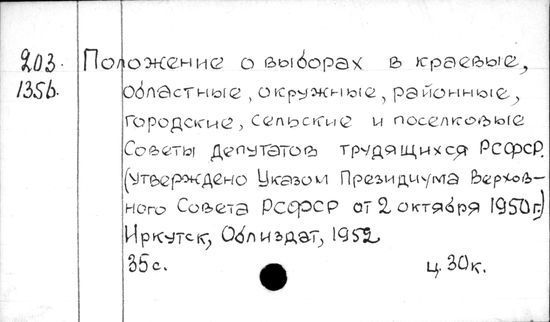 203. Положение о выборах в краевые,
135б. областные, окружные, районные,
городские, сельские и поселковые
Советы депутатов трудящихся РСФСР.
(Утверждено Указом Президиума Верхов-
ного Совета РСФСР от 2 октября 1950г.)
Иркутск, Облиздат, 1952
35с. ц. 30к.